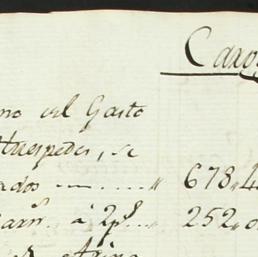 Caxo
no del Gasto
Huespedes, se
ados ... " 678,4
carrs. á 2ps... " 252,0